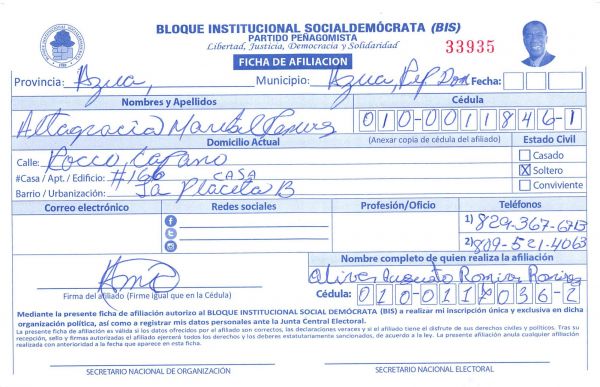 BLOQUE INSTITUCIONAL SOCIALDEMÓCRATA (BIS)
PARTIDO PEÑAGOMISTA
Libertad, Justicia, Democracia y Solidaridad
33935
FICHA DE AFILIACION
Provincia: Azua, Municipio: Azua, Rep Dom Fecha:
Nombres y Apellidos Cédula
Altagracia Maribel 010-0011846-1
Domicilio Actual (Anexar copia de cédula del afiliado) Estado Civil
Calle: Rocco Capano Casado
#Casa / Apt. / Edificio: #166 CASA X Soltero
Barrio / Urbanización: La Placeta B Conviviente
Correo electrónico Redes sociales Profesión/Oficio Teléfonos
1) 829-367-6713
2) 809-521-4063
Nombre completo de quien realiza la afiliación
Augusto Ramirez Ramirez
Firma del afiliado (Firme igual que en la Cédula) Cédula: 010-0117036-2
Mediante la presente ficha de afiliación autorizo al BLOQUE INSTITUCIONAL SOCIAL DEMÓCRATA (BIS) a realizar mi inscripción única y exclusiva en dicha
organización política, así como a registrar mis datos personales ante la Junta Central Electoral.
La presente ficha de afiliación es válida si los datos ofrecidos por el afiliado son correctos, las declaraciones veraces y si el afiliado tiene el disfrute de sus derechos civiles y políticos. Tras su
recepción, sello y firmas autorizadas el afiliado ejercerá todos los derechos y los deberes estatutariamente sancionados, de acuerdo a la ley. La presente afiliación anula cualquier afiliación
realizada con anterioridad a la fecha que aparece en esta ficha.
SECRETARIO NACIONAL DE ORGANIZACIÓN SECRETARIO NACIONAL ELECTORAL